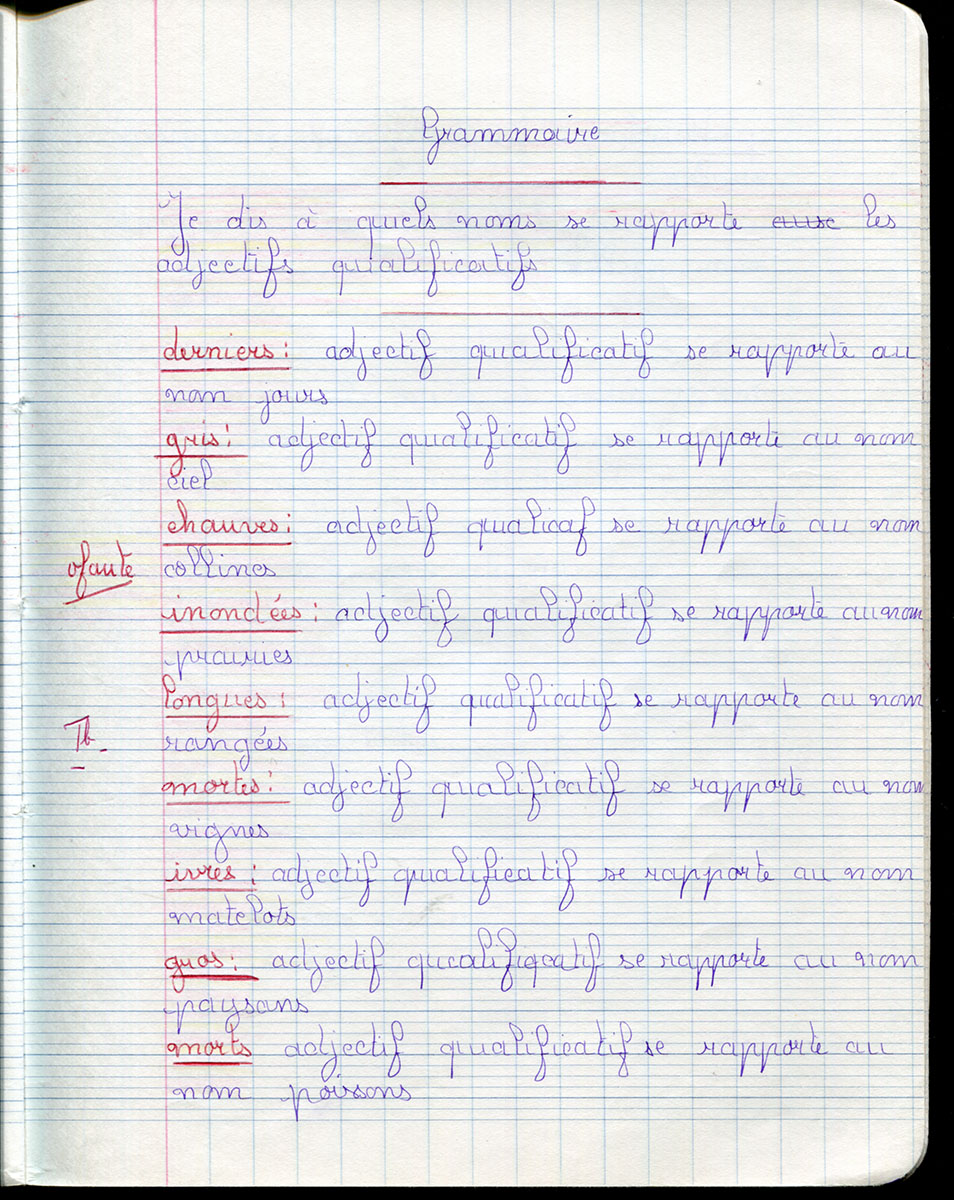 Grammaire
Je dis à quels noms se rapporte les
adjectifs qualificatifs
derniers : adjectif qualificatif se rapporte au
nom jours
gris : adjectif qualificatif se rapporte au nom
ciel
chauves : adjectif qualicaf se rapporte au nom
0faute collines
inondées : adjectif qualificatif se rapporte au nom
prairies
longues : adjectif qualificatif se rapporte au nom
Tb rangées
mortes : adjectif qualificatif se rapporte au nom
vignes
ivres : adjectif qualificatif se rapporte au nom
matelots
gros : adjectif qualificatif se rapporte au nom
paysans
morts adjectif qualificatif se rapporte au
nom poissons